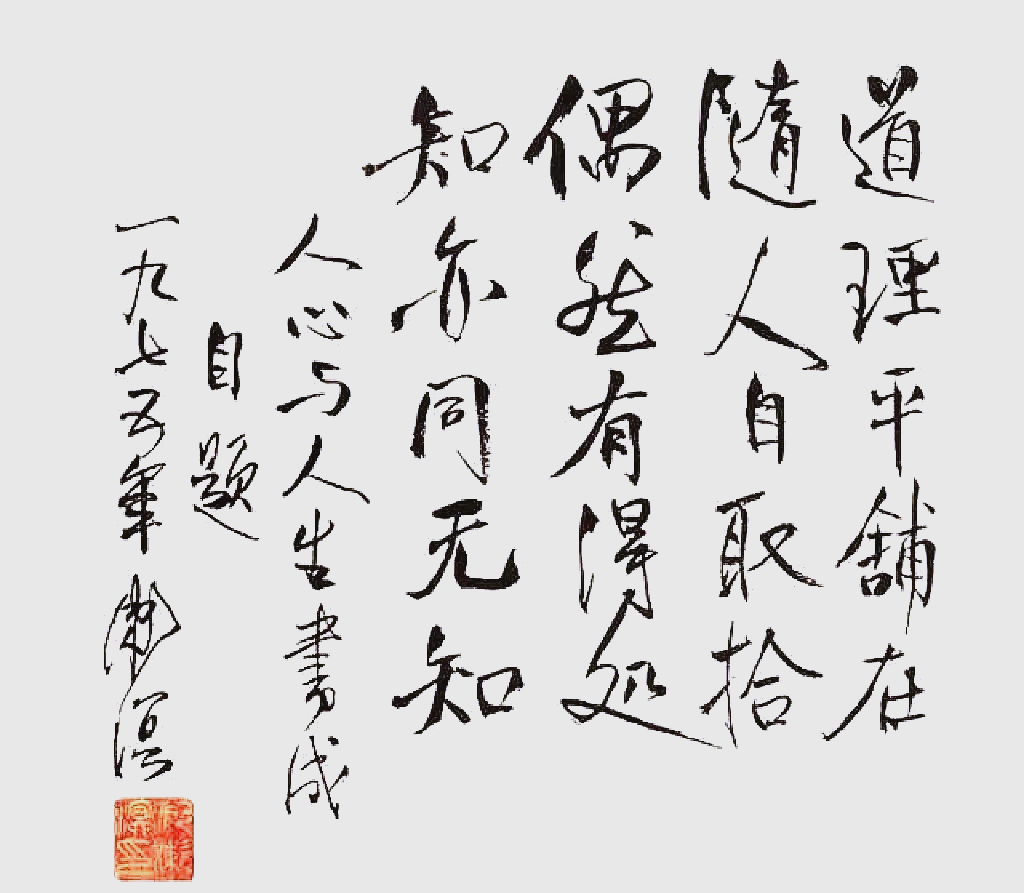 道理平舖在
隨人自取拾
偶然有得処
知亦同无知
人心与人生書成
自題
一九七五年 漱溟